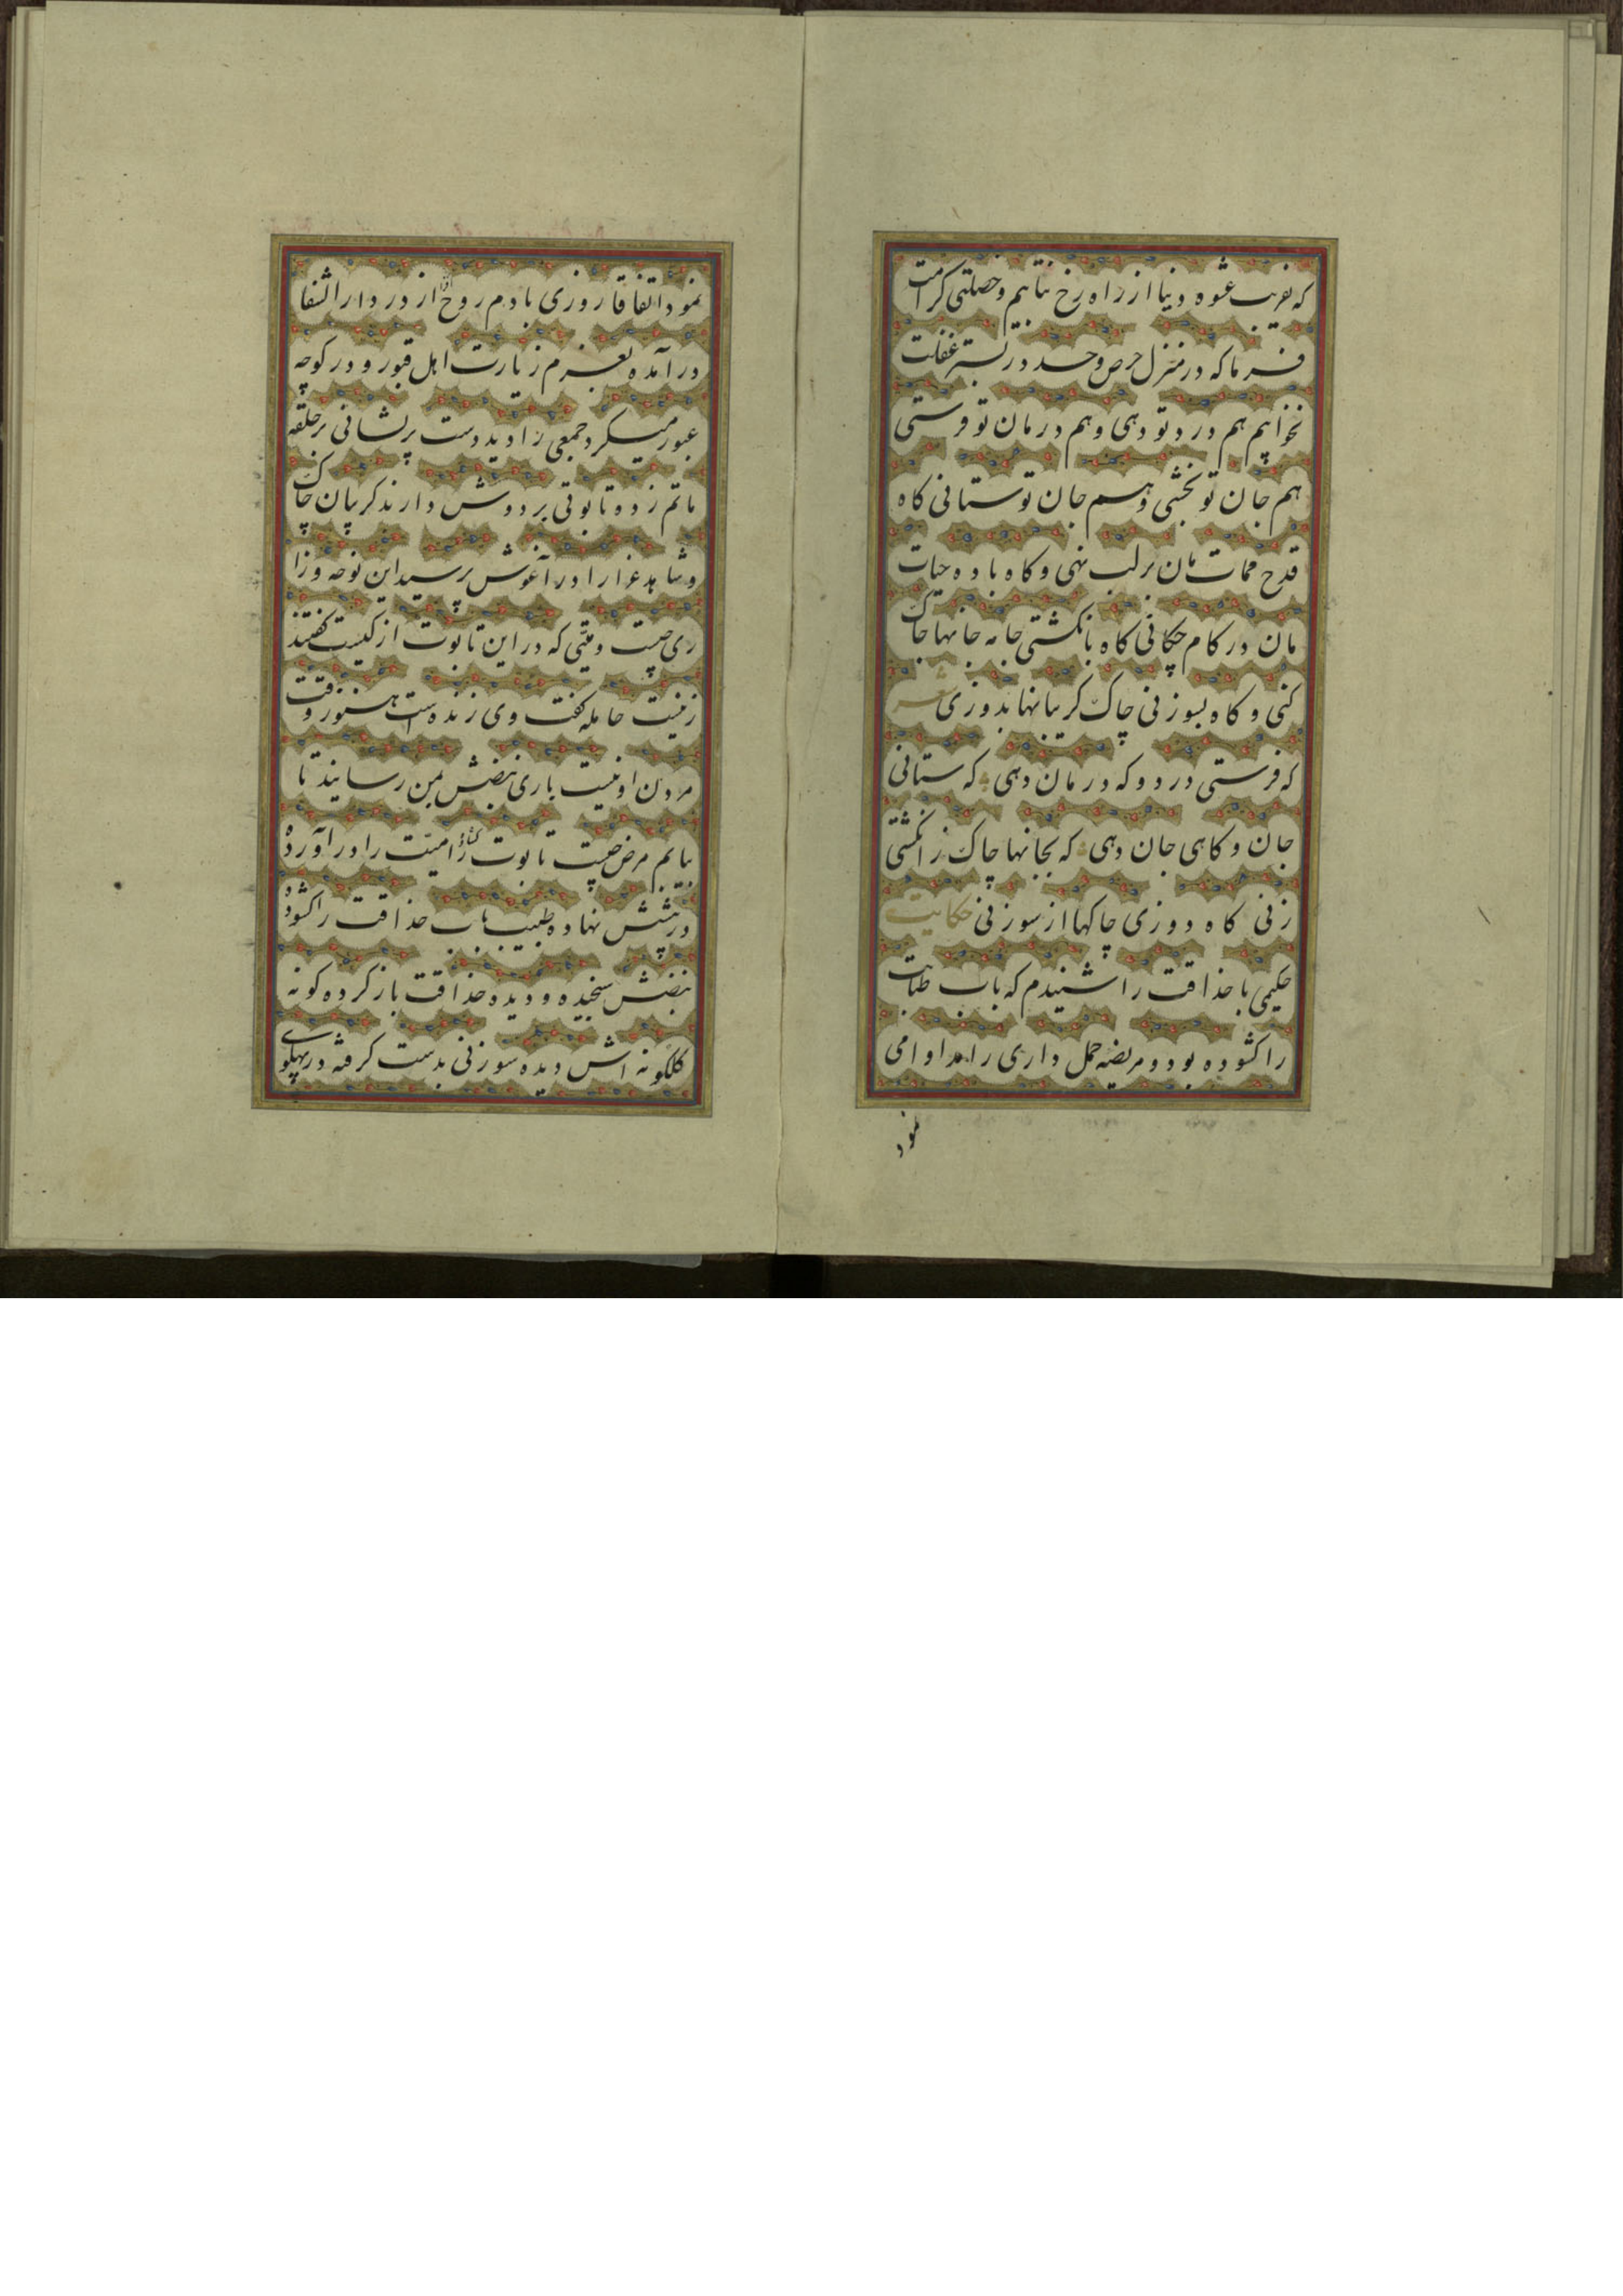 که بفریب عشوه دنیا از راه رخ نتابیم و خصلتی کرامت
فرما که در منزل حرص و حسد در بستر غفلت
نخوابیم هم درد تو دهی و هم درمان تو فرستی
هم جان تو بخشی و هم جان تو ستانی کاه
قدح ممات مان بر لب نهی و کاه باده حیات
مان در کام چکانی کاه بانکشتی جامه جانها چاک
کنی و کاه بسوزنی چاک کریبانها بدوزی شعر
که فرستی درد و که درمان دهی که ستانی
جان و کاهی جان دهی که بجانها چاک ز انکشتی
زنی کاه دوزی چاکها از سوزنی حکایت
حکیمی با حذاقت را شنیدم که باب طبابت
را کشوده بود و مریضه حمل داری را مداوا می
نمود
نمود اتفاقا روزی با دم روح افزا از در دار الشفا
در آمده بعزم زیارت اهل قبور و در کوچه
عبور میکرد جمعی را دید دست پریشانی بر حلقه
ماتم زده و تابوتی بر دوش دارند کریبان چاک
و شاهد عزا را در آغوش پرسید این نوحه و زا
ری چیست و میتی که در این تابوت از کیست کفتند
زنیست حامله کفت وی زنده است هنوز وقت
مردن او نیست باری نبضش بمن رسانید تا
بیابم مرض چیست تابوت کشا را میت را در آورده
در پیشش نهاده طبیب باب حذاقت را کشود
نبضش سنجیده و دیده حذاقت باز کرده کونه
کلکونه اش دیده سوزنی بدست کرفته در پهلوی